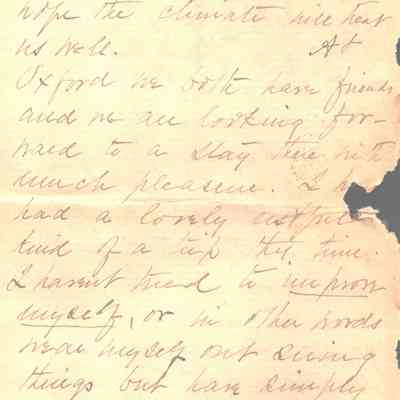 hope the climate will treat
us well. At
Oxford we both have friends
and we are looking for-
ward to a stay there with
much pleasure. I h
had a lovely restful
kind of a trip this time.
I havent tried to improve
myself, or in other words
wear myself out seeing
things but have simply